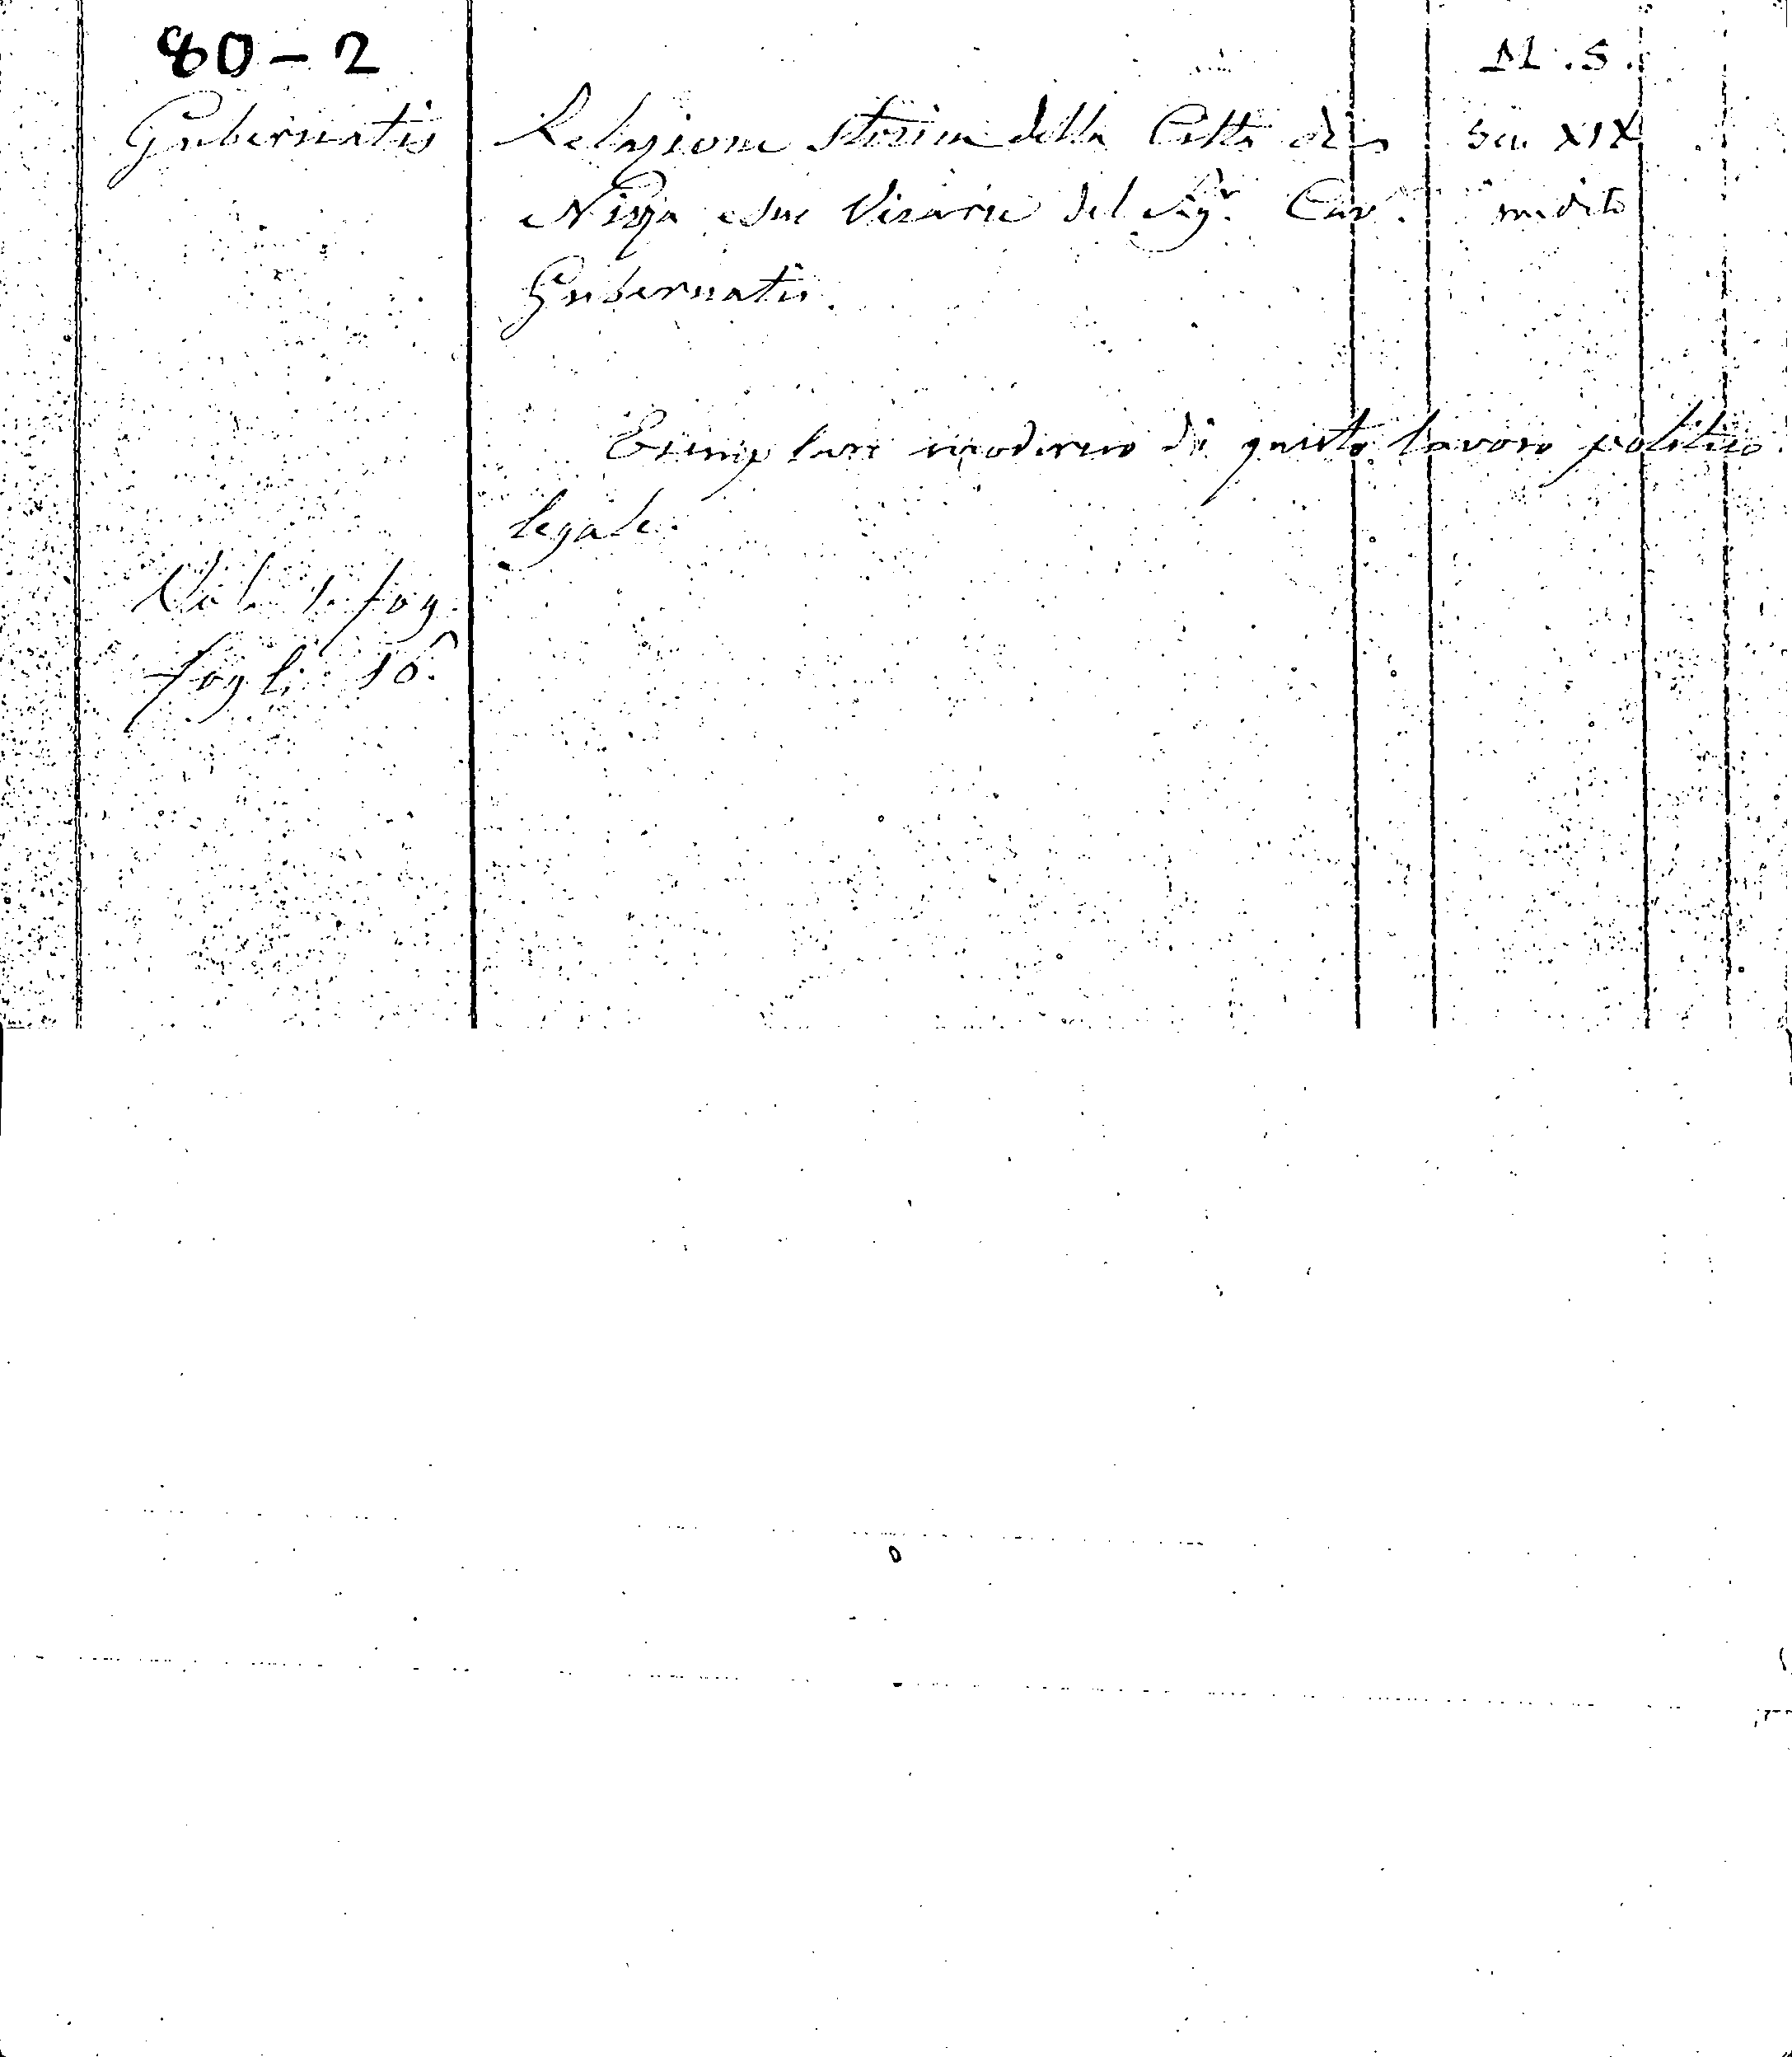 80 – 2
M. S.
Gubernatis
Relazione storica della Città di
Sec. XIX
Nizza e sue Vicarie del Sigr. Cavr.
inedito
Gubernatis.
Esemplare moderno di questo lavoro politico
legale.
Vol. 1. fog.
fogli 10.